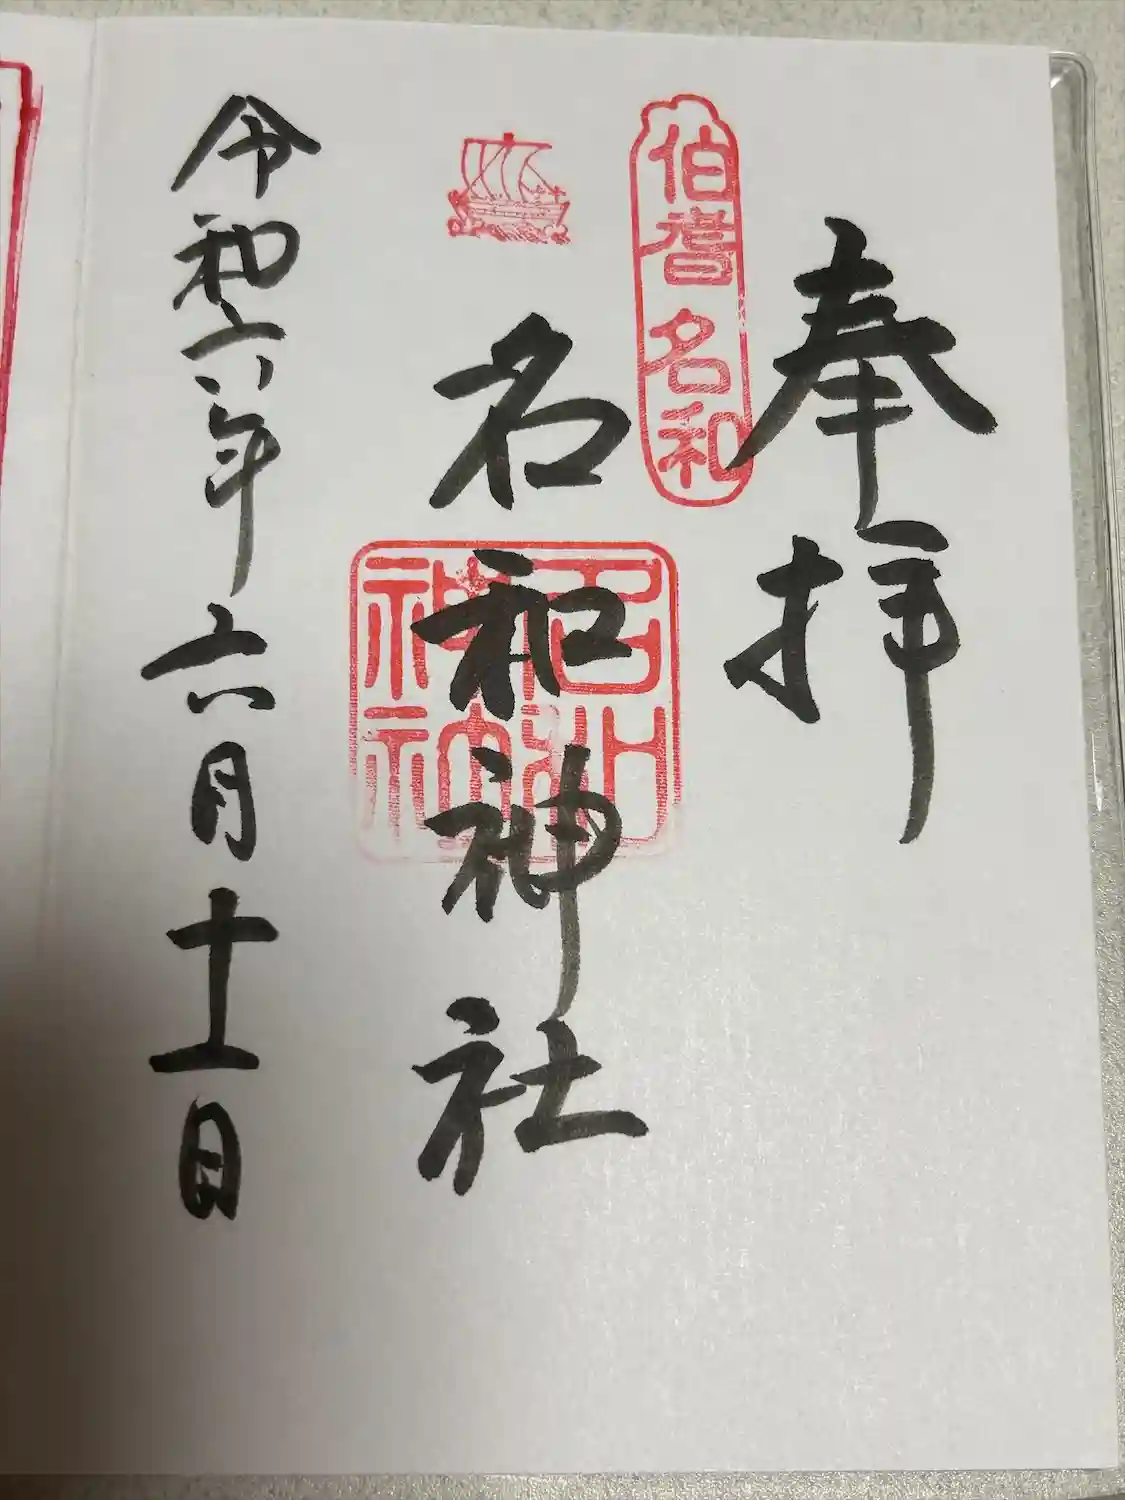 奉拝
伯耆名和
名和神社
令和六年六月十一日